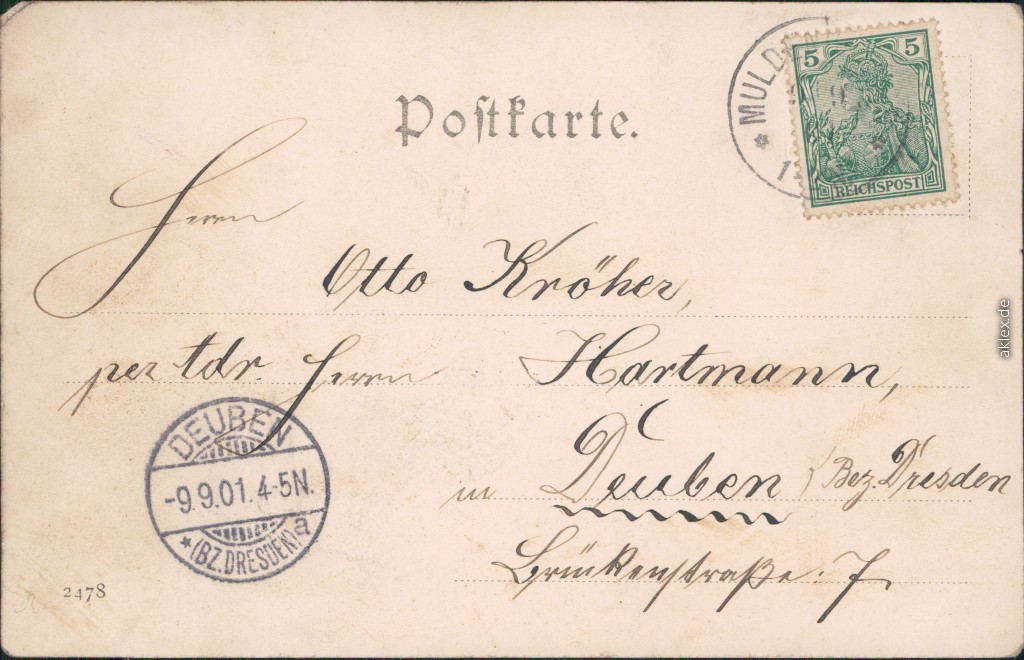 Postkarte.
MULD
9
5 5
REICHSPOST
Herrn
Otto Kröher,
per Adr. Herrn Hartmann,
in Deuben (Bez. Dresden
Brückenstraße: 7.
DEUBEN
-9.9.01. 4-5N.
* (BZ.DRESDEN) a
2478
aklex.de